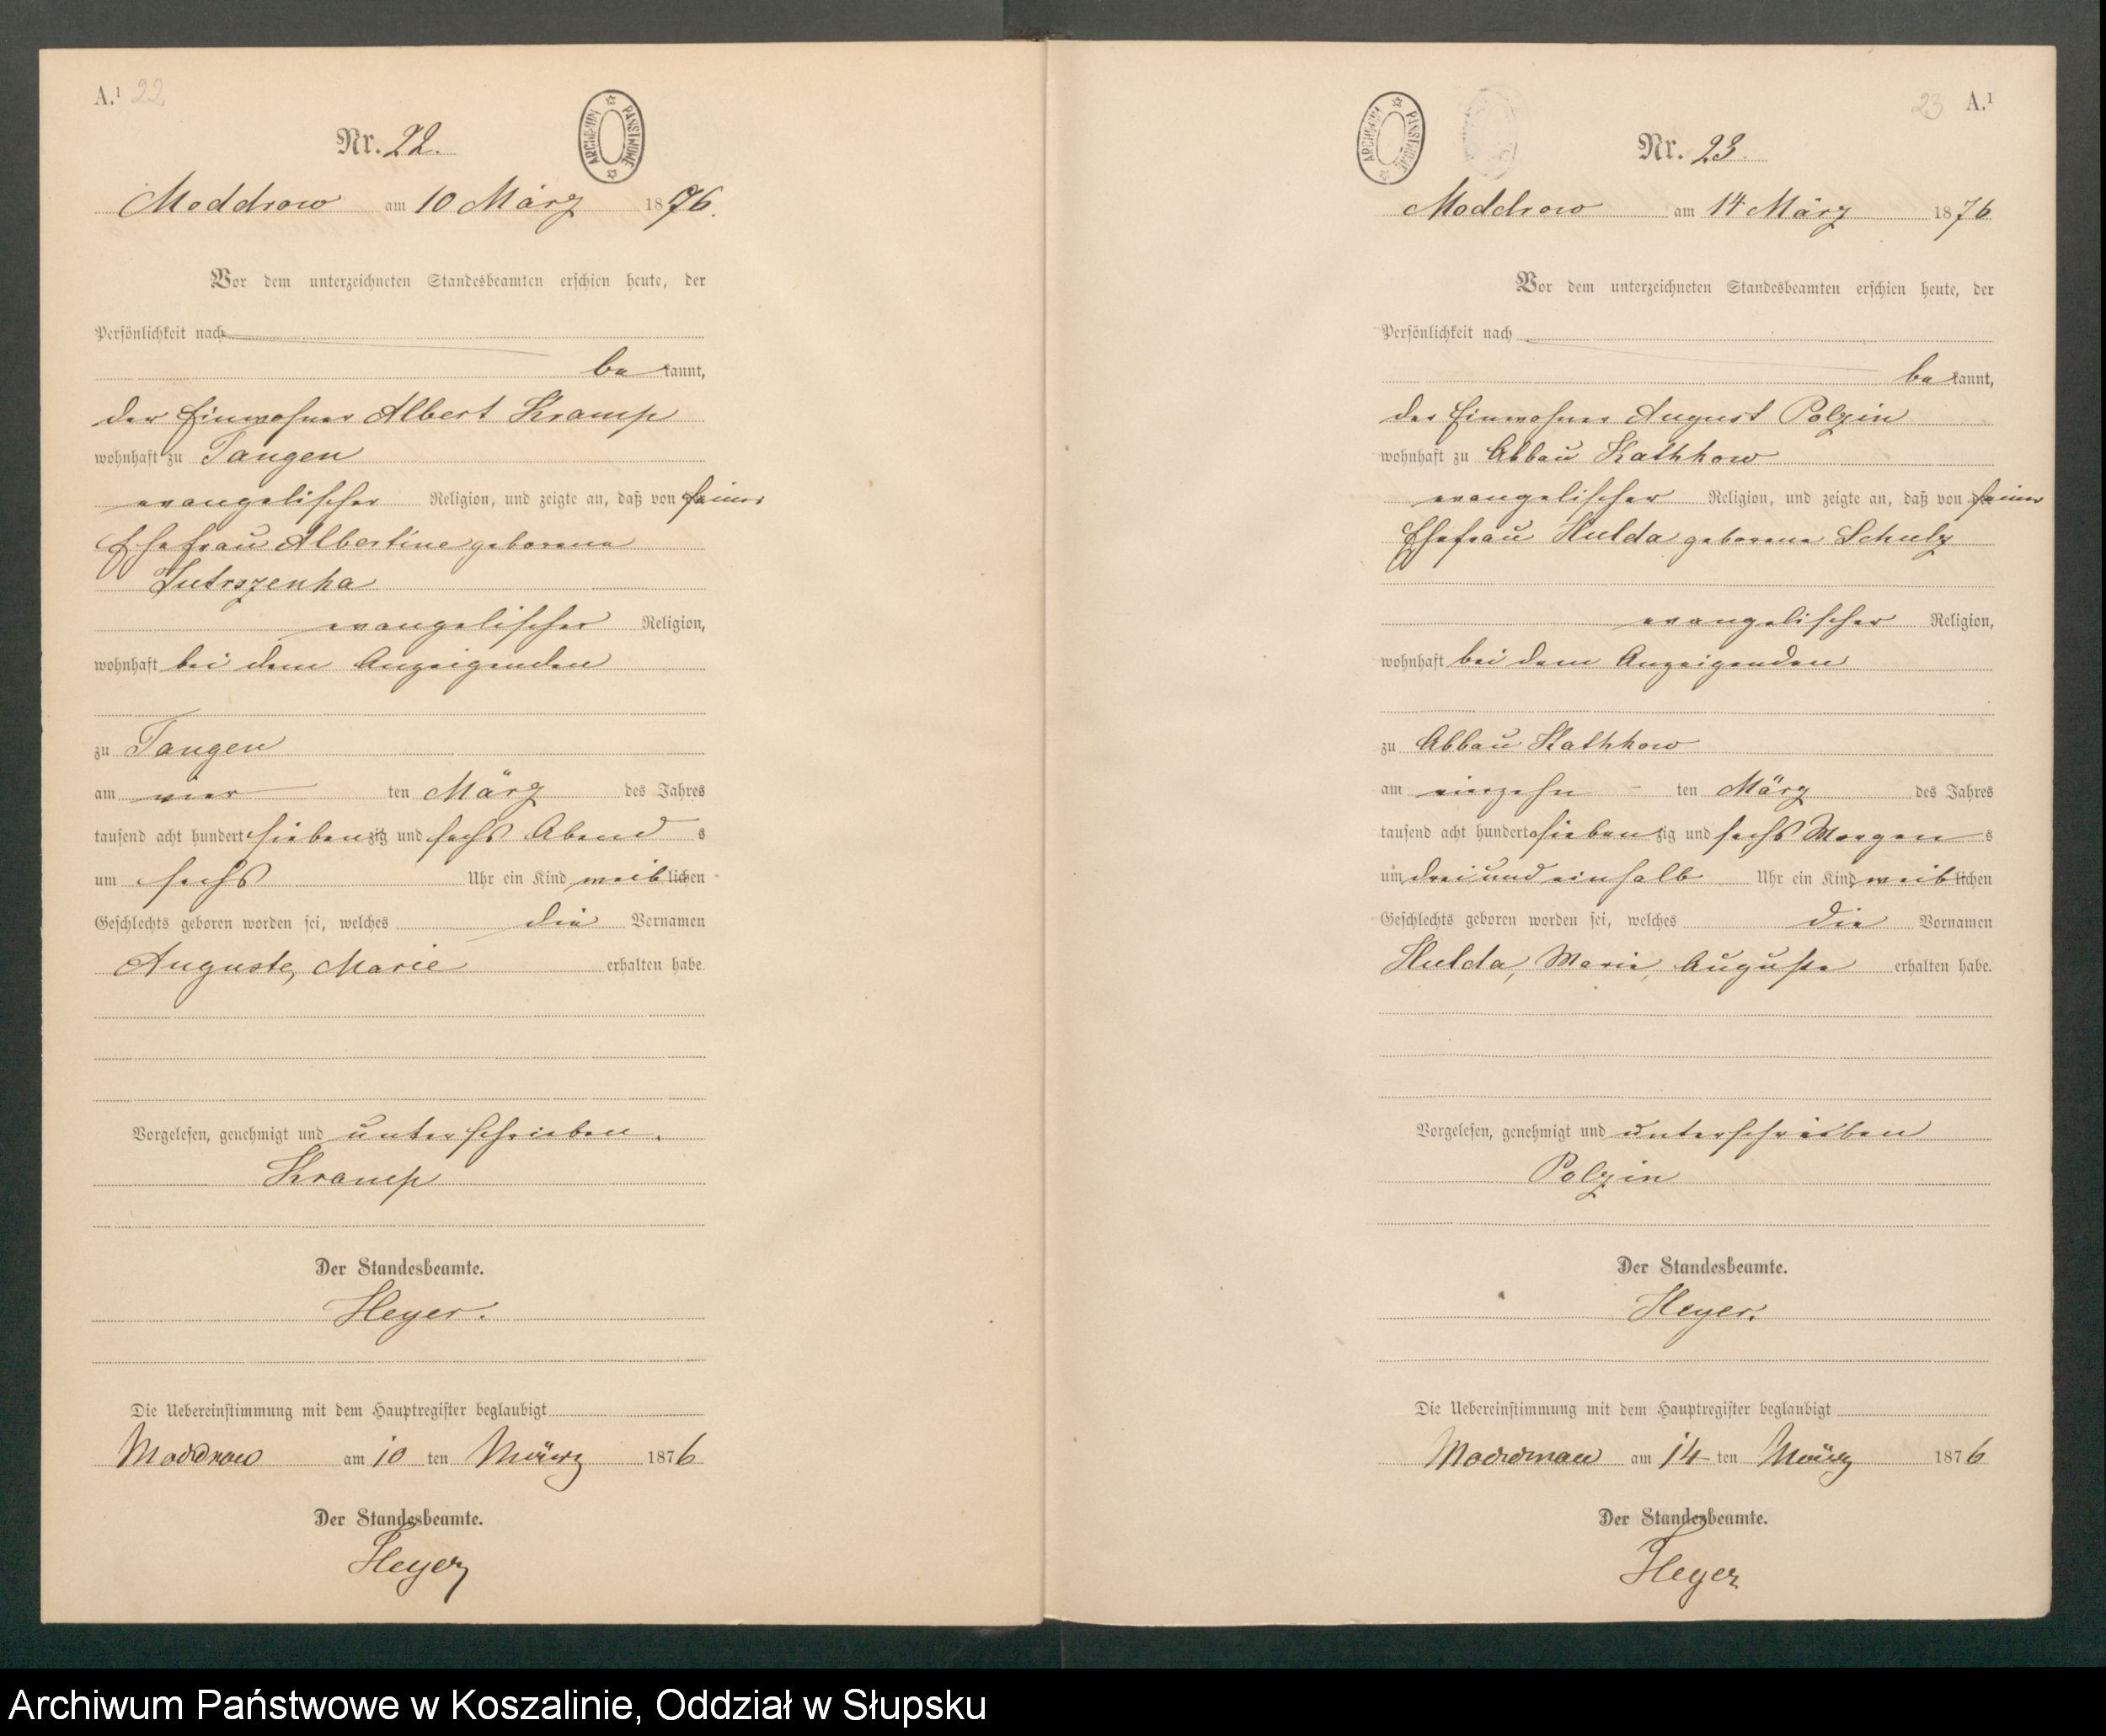 A.¹ 22
ARCHIWUM PAŃSTWOWE
Nr. 22.
Moddrow am 10 März 1876.
Vor dem unterzeichneten Standesbeamten erschien heute, der
Persönlichkeit nach
bekannt,
der Einwohner Albert Kramp
wohnhaft zu Tangen
evangelischer Religion, und zeigte an, daß von seiner
Ehefrau Albertine geborene
Jutrszenka
evangelischer Religion,
wohnhaft bei dem Anzeigenden
zu Tangen
am vier ten März des Jahres
tausend acht hundert siebenzig und sechs Abends
um sechs Uhr ein Kind weiblichen
Geschlechts geboren worden sei, welches die Vornamen
Auguste, Marie erhalten habe.
Vorgelesen, genehmigt und unterschrieben.
Kramp
Der Standesbeamte.
Heyer.
Die Uebereinstimmung mit dem Hauptregister beglaubigt
Moddrow am 10 ten März 1876
Der Standesbeamte.
Heyer
23 A.¹
ARCHIWUM PAŃSTWOWE
Nr. 23.
Moddrow am 14 März 1876
Vor dem unterzeichneten Standesbeamten erschien heute, der
Persönlichkeit nach
bekannt,
der Einwohner August Polzin
wohnhaft zu Abbau Kathkow
evangelischer Religion, und zeigte an, daß von seiner
Ehefrau Hulda geborene Schulz
evangelischer Religion,
wohnhaft bei dem Anzeigenden
zu Abbau Kathkow
am vierzehn ten März des Jahres
tausend acht hundert siebenzig und sechs Morgens
um drei und einhalb Uhr ein Kind weiblichen
Geschlechts geboren worden sei, welches die Vornamen
Hulda, Marie, Auguste erhalten habe.
Vorgelesen, genehmigt und unterschrieben
Polzin
Der Standesbeamte.
Heyer.
Die Uebereinstimmung mit dem Hauptregister beglaubigt
Moddrow am 14 ten März 1876
Der Standesbeamte.
Heyer
Archiwum Państwowe w Koszalinie, Oddział w Słupsku